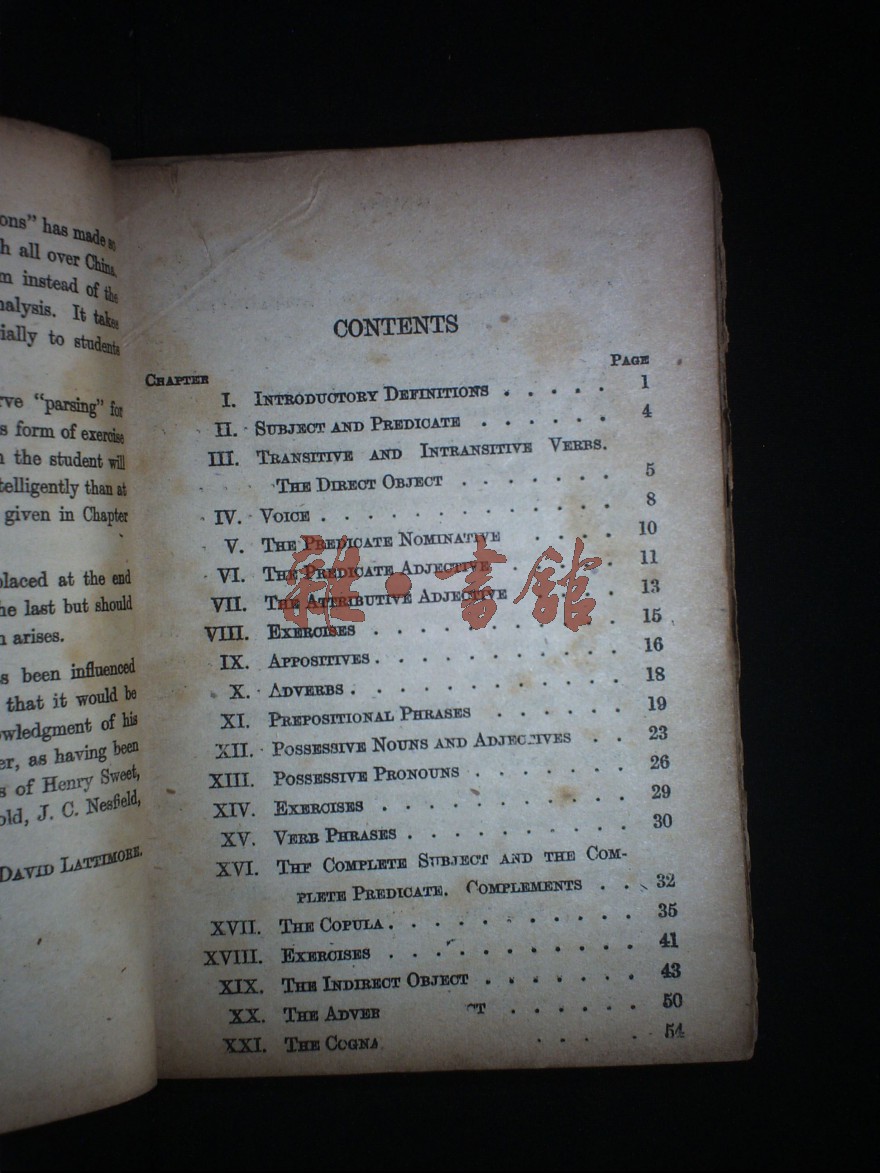 ons" has made so
h all over China,
m instead of the
nalysis. It takes
ially to students
rve "parsing" for
s form of exercise
n the student will
telligently than at
given in Chapter
placed at the end
he last but should
n arises.
s been influenced
that it would be
owledgment of his
er, as having been
s of Henry Sweet,
old, J. C. Nesfield,
DAVID LATTIMORE.
CONTENTS
CHAPTER PAGE
I. INTRODUCTORY DEFINITIONS . . . . . 1
II. SUBJECT AND PREDICATE . . . . . . 4
III. TRANSITIVE AND INTRANSITIVE VERBS.
THE DIRECT OBJECT . . . . . . . 5
IV. VOICE . . . . . . . . . . . . . 8
V. THE PREDICATE NOMINATIVE . . . . 10
VI. THE PREDICATE ADJECTIVE . . . . . 11
VII. THE ATTRIBUTIVE ADJECTIVE . . . . 13
VIII. EXERCISES . . . . . . . . . . . 15
IX. APPOSITIVES . . . . . . . . . . . 16
X. ADVERBS . . . . . . . . . . . . 18
XI. PREPOSITIONAL PHRASES . . . . . . 19
XII. POSSESSIVE NOUNS AND ADJECTIVES . . 23
XIII. POSSESSIVE PRONOUNS . . . . . . . 26
XIV. EXERCISES . . . . . . . . . . . 29
XV. VERB PHRASES . . . . . . . . . . 30
XVI. THE COMPLETE SUBJECT AND THE COM-
PLETE PREDICATE. COMPLEMENTS . . . 32
XVII. THE COPULA . . . . . . . . . . . 35
XVIII. EXERCISES . . . . . . . . . . . 41
XIX. THE INDIRECT OBJECT . . . . . . . 43
XX. THE ADVER CT . . . . . 50
XXI. THE COGNA . . . . 54
雜·書館